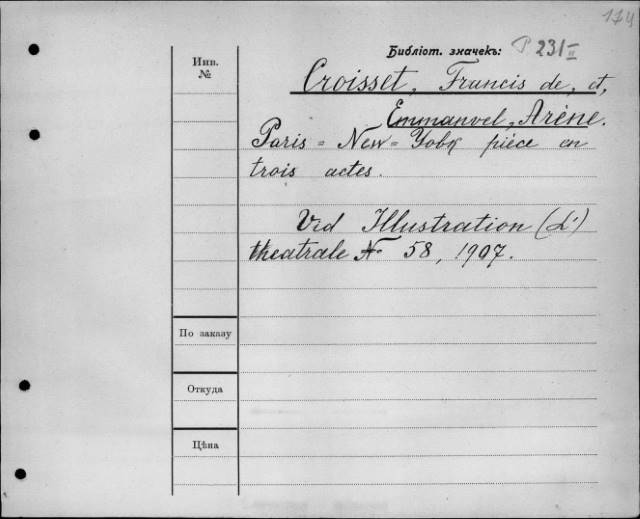 174
Библіот. значекъ: P. 231-II
Инв.
№
Croisset, Francis de, et,
Emmanuel, Arène.
Paris = New = York piéce en
trois actes.
Vid Illustration (L')
theatrale № 58, 1907.
По заказу
Откуда
Цѣна